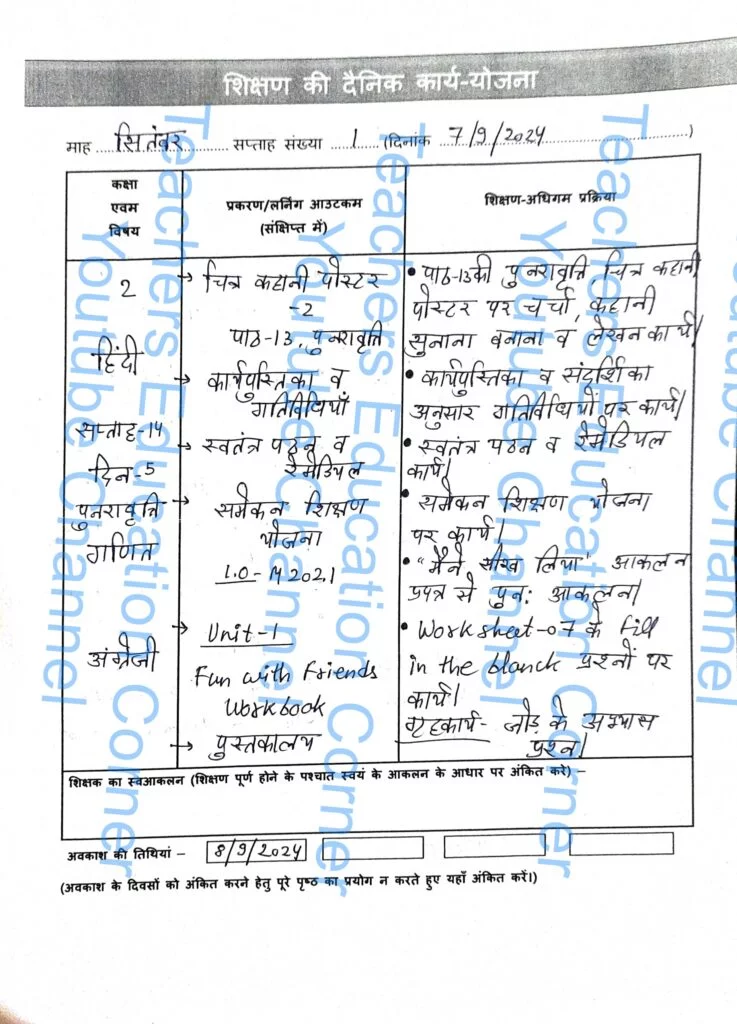 शिक्षण की दैनिक कार्य-योजना
माह सितंबर सप्ताह संख्या 1 (दिनांक 7/9/2024)
कक्षा
एवम
विषय
प्रकरण/लर्निंग आउटकम
(संक्षिप्त में)
शिक्षण-अधिगम प्रक्रिया
2
हिंदी
सप्ताह-14
दिन-5
पुनरावृत्ति
गणित
अंग्रेजी
→ चित्र कहानी पोस्टर
-2
पाठ-13, पुनरावृत्ति
→ कार्यपुस्तिका व
गतिविधियाँ
→ स्वतंत्र पठन व
रेमेडियल
→ समेकन शिक्षण
योजना
L.O-M 202,1
Unit-1
Fun with Friends
Workbook
→ पुस्तकालय
• पाठ-13 की पुनरावृत्ति, चित्र कहानी
पोस्टर पर चर्चा, कहानी
सुनाना बनाना व लेखन कार्य।
• कार्यपुस्तिका व संदर्शिका
अनुसार गतिविधियों पर कार्य।
• स्वतंत्र पठन व रेमेडियल
कार्य।
• समेकन शिक्षण योजना
पर कार्य।
• "मैंने सीख लिया" आकलन
प्रपत्र से पुन: आकलन।
• Worksheet-07 के fill
in the blanck प्रश्नों पर
कार्य।
गृहकार्य- जोड़ के अभ्यास
प्रश्न।
शिक्षक का स्वआकलन (शिक्षण पूर्ण होने के पश्चात स्वयं के आकलन के आधार पर अंकित करे) –
अवकाश की तिथियां – 8/9/2024
(अवकाश के दिवसों को अंकित करने हेतु पूरे पृष्ठ का प्रयोग न करते हुए यहाँ अंकित करें।)
Teachers Education Corner
Youtube Channel
Teachers Education Corner
Youtube Channel
Teachers Education Corner
Youtube Channel